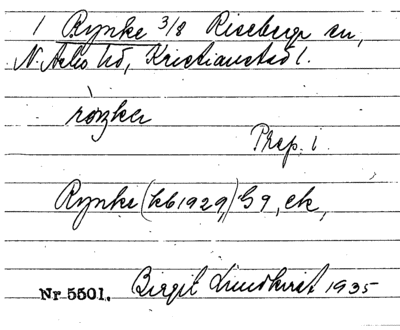 1 Rynke 3/8 Riseberga sn,
N. Åsbo hd, Kristianstad l.
Prep. i
Rynke (kb 1929,) G9, ek,
Nr 5501. Birgit Lindkvist 1935